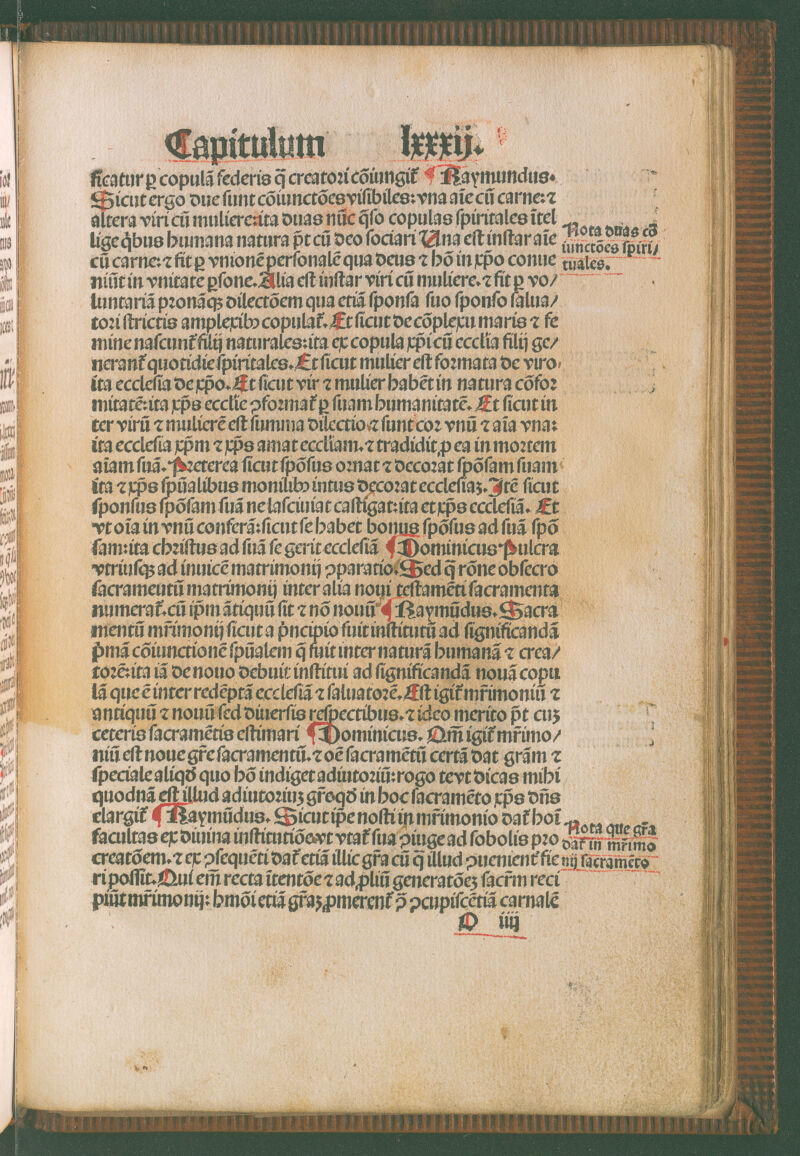 Capitulum lxxxij.
ficatur ꝑ copulã federis q̃ creatori cõiungit᷑ ¶ Raymundus.
Sicut ergo due sunt cõiunctões visibiles: vna aĩe cũ carne: ⁊
altera viri cũ muliere: ita duas nũc q̃so copulas spiritales ĩtel
lige q̇bus humana natura p̃t cũ deo sociari Una est instar aĩe
cũ carne: ⁊ fit ꝑ vnionẽ personalẽ qua deus ⁊ hõ in xp̃o conue
niũt in vnitate ꝑsone. Alia est instar viri cũ muliere. ⁊ fit ꝑ vo/
luntariã pronãqꝫ dilectõem qua etiã sponsa suo sponso salua/
tori strictis amplexibꝰ copulat᷑. Et sicut de cõplexu maris ⁊ fe
mine nascunt᷑ filij naturales: ita ex copula xp̃i cũ ecclĩa filij ge/
nerant᷑ quotidie spiritales. Et sicut mulier est formata de viro:
ita ecclesia de xp̃o. Et sicut vir ⁊ mulier habẽt in natura cõfor
mitatẽ: ita xp̃s ecclĩe ꝯformat᷑ ꝑ suam humanitatẽ. Et sicut in
ter virũ ⁊ mulierẽ est summa dilectio ⁊ sunt cor vnũ ⁊ aĩa vna:
ita ecclesia xp̃m ⁊ xp̃s amat eccliam. ⁊ tradidit ꝓ ea in mortem
aĩam suã. Preterea sicut spõsus ornat ⁊ decorat spõsam suam
ita ⁊ xp̃s spũalibus monilibꝰ intus decorat ecclesiaꝫ. Itẽ sicut
sponsus spõsam suã ne lasciuiat castigat: ita et xp̃s ecclesiã. Et
vt oĩa in vnũ conferã: sicut se habet bonus spõsus ad suã spõ
sam: ita christus ad suã se gerit ecclesiã ¶ Dominicus Pulcra
vtriusqꝫ ad inuicẽ matrimonij ꝯparatio. Sed q̃ rõne obsecro
sacramentũ matrimonij inter alia noui testamẽti sacramenta
numerat᷑. cũ ip̃m ãtiquũ sit ⁊ nõ nouũ ¶ Raymũdus. Sacra
mentũ mr̃imonij sicut a pṙncipio fuit institutũ ad significandã
pṙmã cõiunctionẽ spũalem q̃ fuit inter naturã humanã ⁊ crea/
torẽ: ita iã de nouo debuit institui ad significandã nouã copu
lã que ẽ inter redẽptã ecclesiã ⁊ saluatorẽ. Est igit᷑ mr̃imoniũ ⁊
antiquũ ⁊ nouũ sed diuersis respectibus. ⁊ ideo merito p̃t cuꝫ
ceteris sacramẽtis estimari ¶ Dominicus. Qm̃ igit᷑ mr̃imo/
niũ est noue gr̃e sacramentũ. ⁊ oẽ sacramẽtũ certã dat grãm ⁊
speciale aliqd̃ quo hõ indiget adiutoriũ: rogo te vt dicas mihi
quodnã est illud adiutoriuꝫ gr̃e qd̃ in hoc sacramẽto xp̃s dñs
elargit᷑ ¶ Raymũdus. Sicut ip̃e nosti in mr̃imonio dat᷑ hoĩ
facultas ex diuina institutiõe vt vtat᷑ sua ꝯiuge ad sobolis pro
creatõem. ⁊ ex ꝯsequẽti dat᷑ etiã illic gr̃a cũ q̃ illud ꝯuenient᷑ fie
ri possit. Qui em̃ recta ĩtentõe ⁊ ad ꝓliũ generatõeꝫ sacr̃m reci
piũt mr̃imonij: hmõi etiã gr̃aꝫ ꝓmerent᷑ ꝙ̃ ꝯcupiscẽtiã carnalẽ
O iiij
Nota duas cõ
iunctões spiri/
tuales.
Nota que gr̃a
dat᷑ in mr̃imo
nij sacramẽto